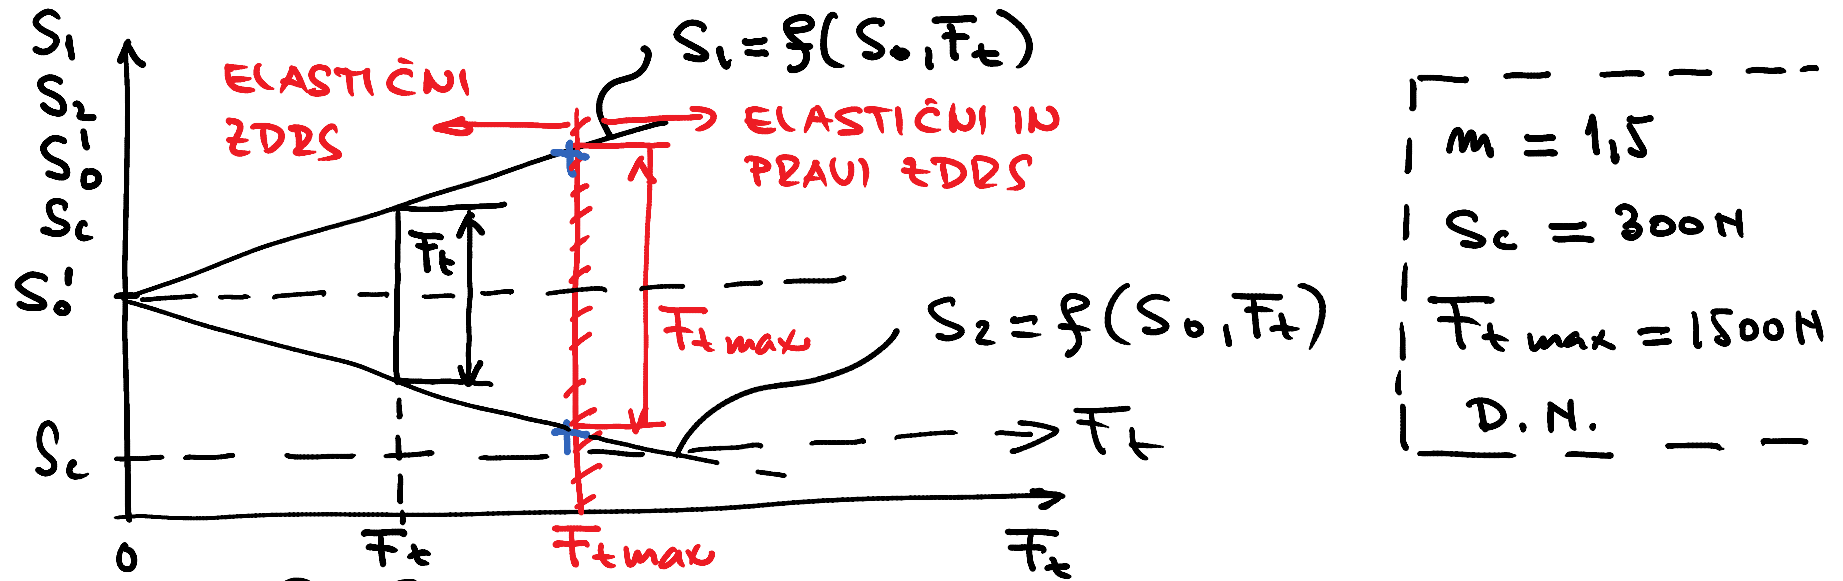 S₁
S₂
S₀'
Sc
S₀'
Sc
ELASTIČNI
ZDRS
S₁ = f(S₀, Ft)
ELASTIČNI IN
PRAVI ZDRS
Ft
Ft max
S₂ = f(S₀, Ft)
Ft
0
Ft
Ft max
Ft
m = 1,5
Sc = 300N
Ft max = 1500N
D.N.